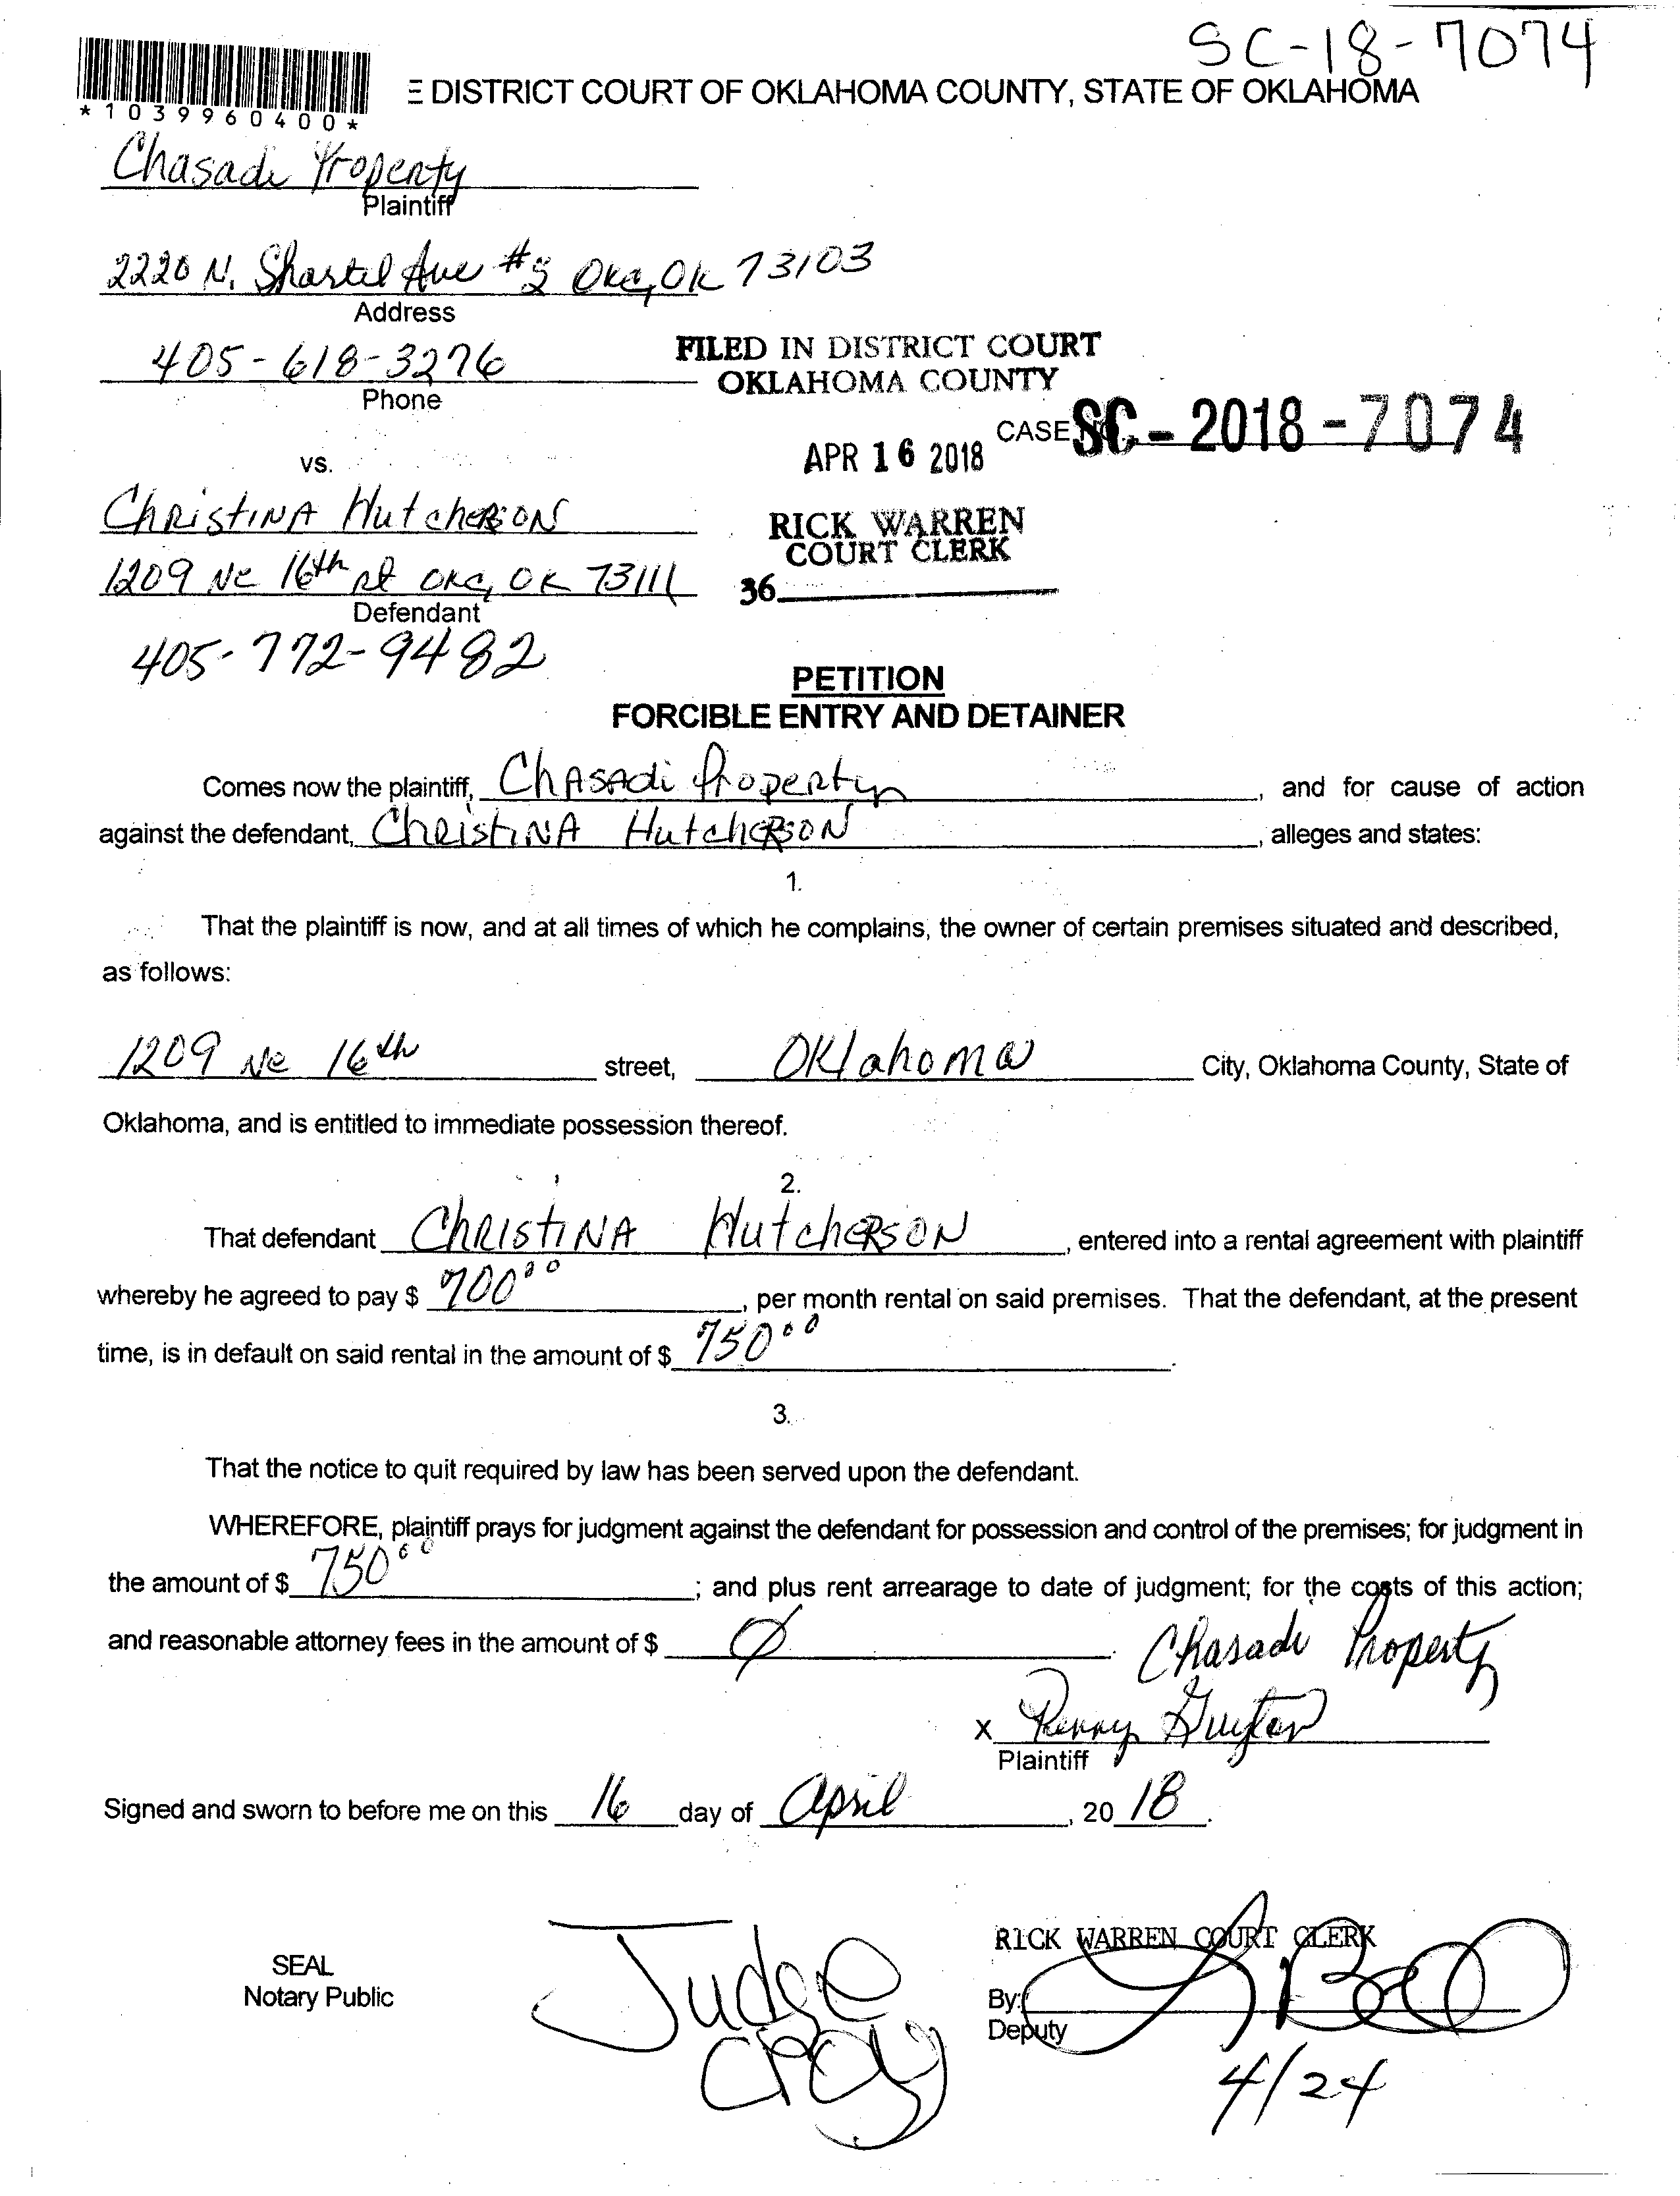 SC-18-7074
E DISTRICT COURT OF OKLAHOMA COUNTY, STATE OF OKLAHOMA
*1039960400*
Chasadi Property
Plaintiff
2220 N. Shartel Ave # OKC, OK 73103
Address
405-618-3276
Phone
FILED IN DISTRICT COURT
OKLAHOMA COUNTY
CASE SC - 2018 - 7074
APR 16 2018
vs.
Christina Hutcherson
RICK WARREN
COURT CLERK
1209 NE 16th st OKC, OK 73111
36
Defendant
405-772-9482
PETITION
FORCIBLE ENTRY AND DETAINER
Comes now the plaintiff, Chasadi Property, and for cause of action
against the defendant, Christina Hutcherson, alleges and states:
1.
That the plaintiff is now, and at all times of which he complains, the owner of certain premises situated and described,
as follows:
1209 Ne 16th street, Oklahoma City, Oklahoma County, State of
Oklahoma, and is entitled to immediate possession thereof.
2.
That defendant Christina Hutcherson, entered into a rental agreement with plaintiff
whereby he agreed to pay $ 700 00, per month rental on said premises. That the defendant, at the present
time, is in default on said rental in the amount of $ 750 00.
3.
That the notice to quit required by law has been served upon the defendant.
WHEREFORE, plaintiff prays for judgment against the defendant for possession and control of the premises; for judgment in
the amount of $ 750 00; and plus rent arrearage to date of judgment; for the costs of this action;
and reasonable attorney fees in the amount of $ Ø.
Chasadi Property
x Penny Guyton
Plaintiff
Signed and sworn to before me on this 16 day of April, 20 18.
RICK WARREN COURT CLERK
SEAL
Notary Public
Judge
By:
Deputy
4/24